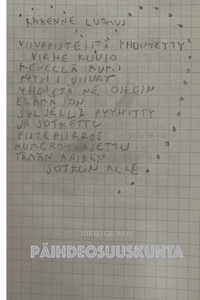 RAKENNE LUOMUS
VIIVAPUTEISTÄ YHDISTETTY
VIRHE KUVIO
KEVELLÄ KUMI
PYYHI VIIVAT
YHDISTÄ NE OIKEIN
ELÄMÄ ON
SYLJELLÄ PYYHITTY
JA SOTKETTU
PISTEPIIRROS
NUMEROT AJETTU
TÄMÄN KAIKEN
SOTKUN ALLE
MIKKO GROMOV
PÄIHDEOSUUSKUNTA